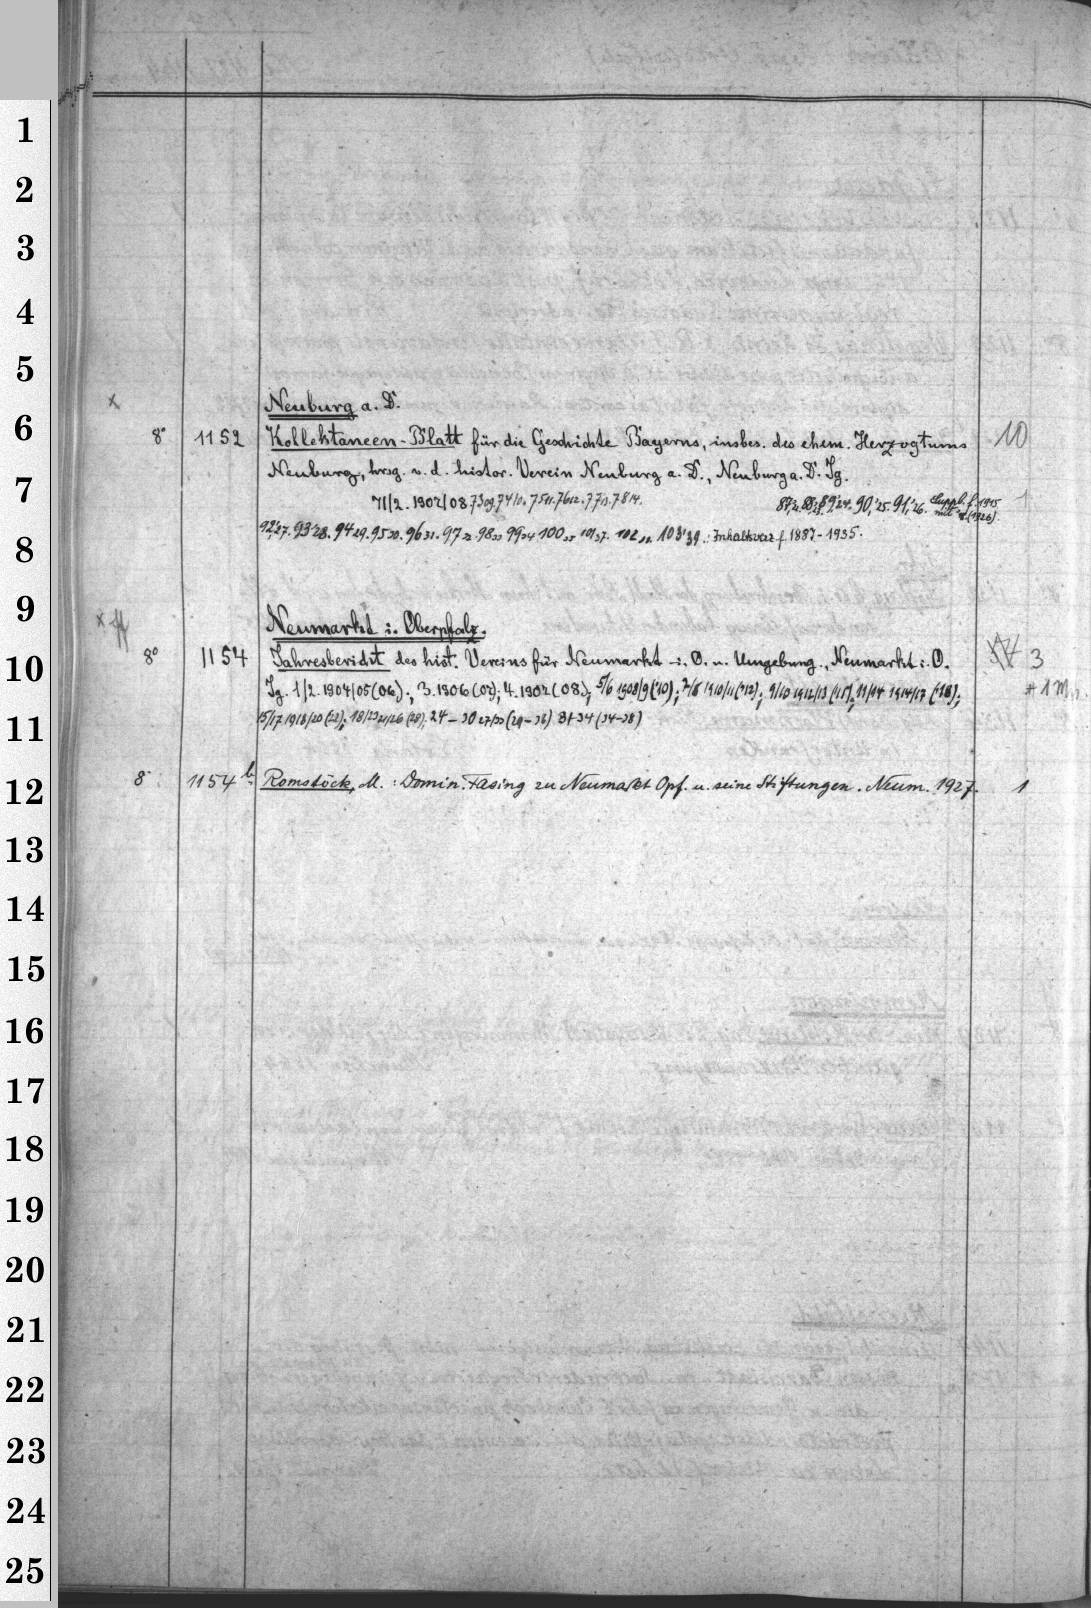 1
2
3
4
5
6
7
8
9
10
11
12
13
14
15
16
17
18
19
20
21
22
23
24
25
x Neuburg a. D.
8° 1152 Kollektaneen-Blatt für die Geschichte Bayerns, insbes. des ehem. Herzogtums 10
Neuburg, hrsg. v. d. histor. Verein Neuburg a. D., Neuburg a. D. Jg.
71/2. 1907/08. 73 09, 74 10. 75 11. 76 12. 77 13. 78 14. 90,'25. 91,'26. Suppl. f. 1915 1
92,'27. 93'28. 94 29. 95 30. 96 31. 97 32. 98 33. 99 34. 100 35. 101 37. 102 103'39. Inhaltsverz. f. 1887-1935.
x Neumarkt i. Oberpfalz.
8° 1154 Jahresbericht des hist. Vereins für Neumarkt i. O. u. Umgebung., Neumarkt i. O. 3
Jg. 1/2. 1904/05 (06); 3. 1906 (07); 4. 1907 (08); 5/6 1908/9 ('10); 7/8 1910/11 ('12); 9/10 1912/13 ('15); 11/14 1914/17 ('18); + 1 M.
15/17 1918/20 (22); 18/23 21/26 (28), 24 - 30 27/33 (29-36) 31-34 (34-38)
8° 1154 b Romstöck, M.: Domin. Fasing zu Neumarkt Opf. u. seine Stiftungen. Neum. 1927. 1